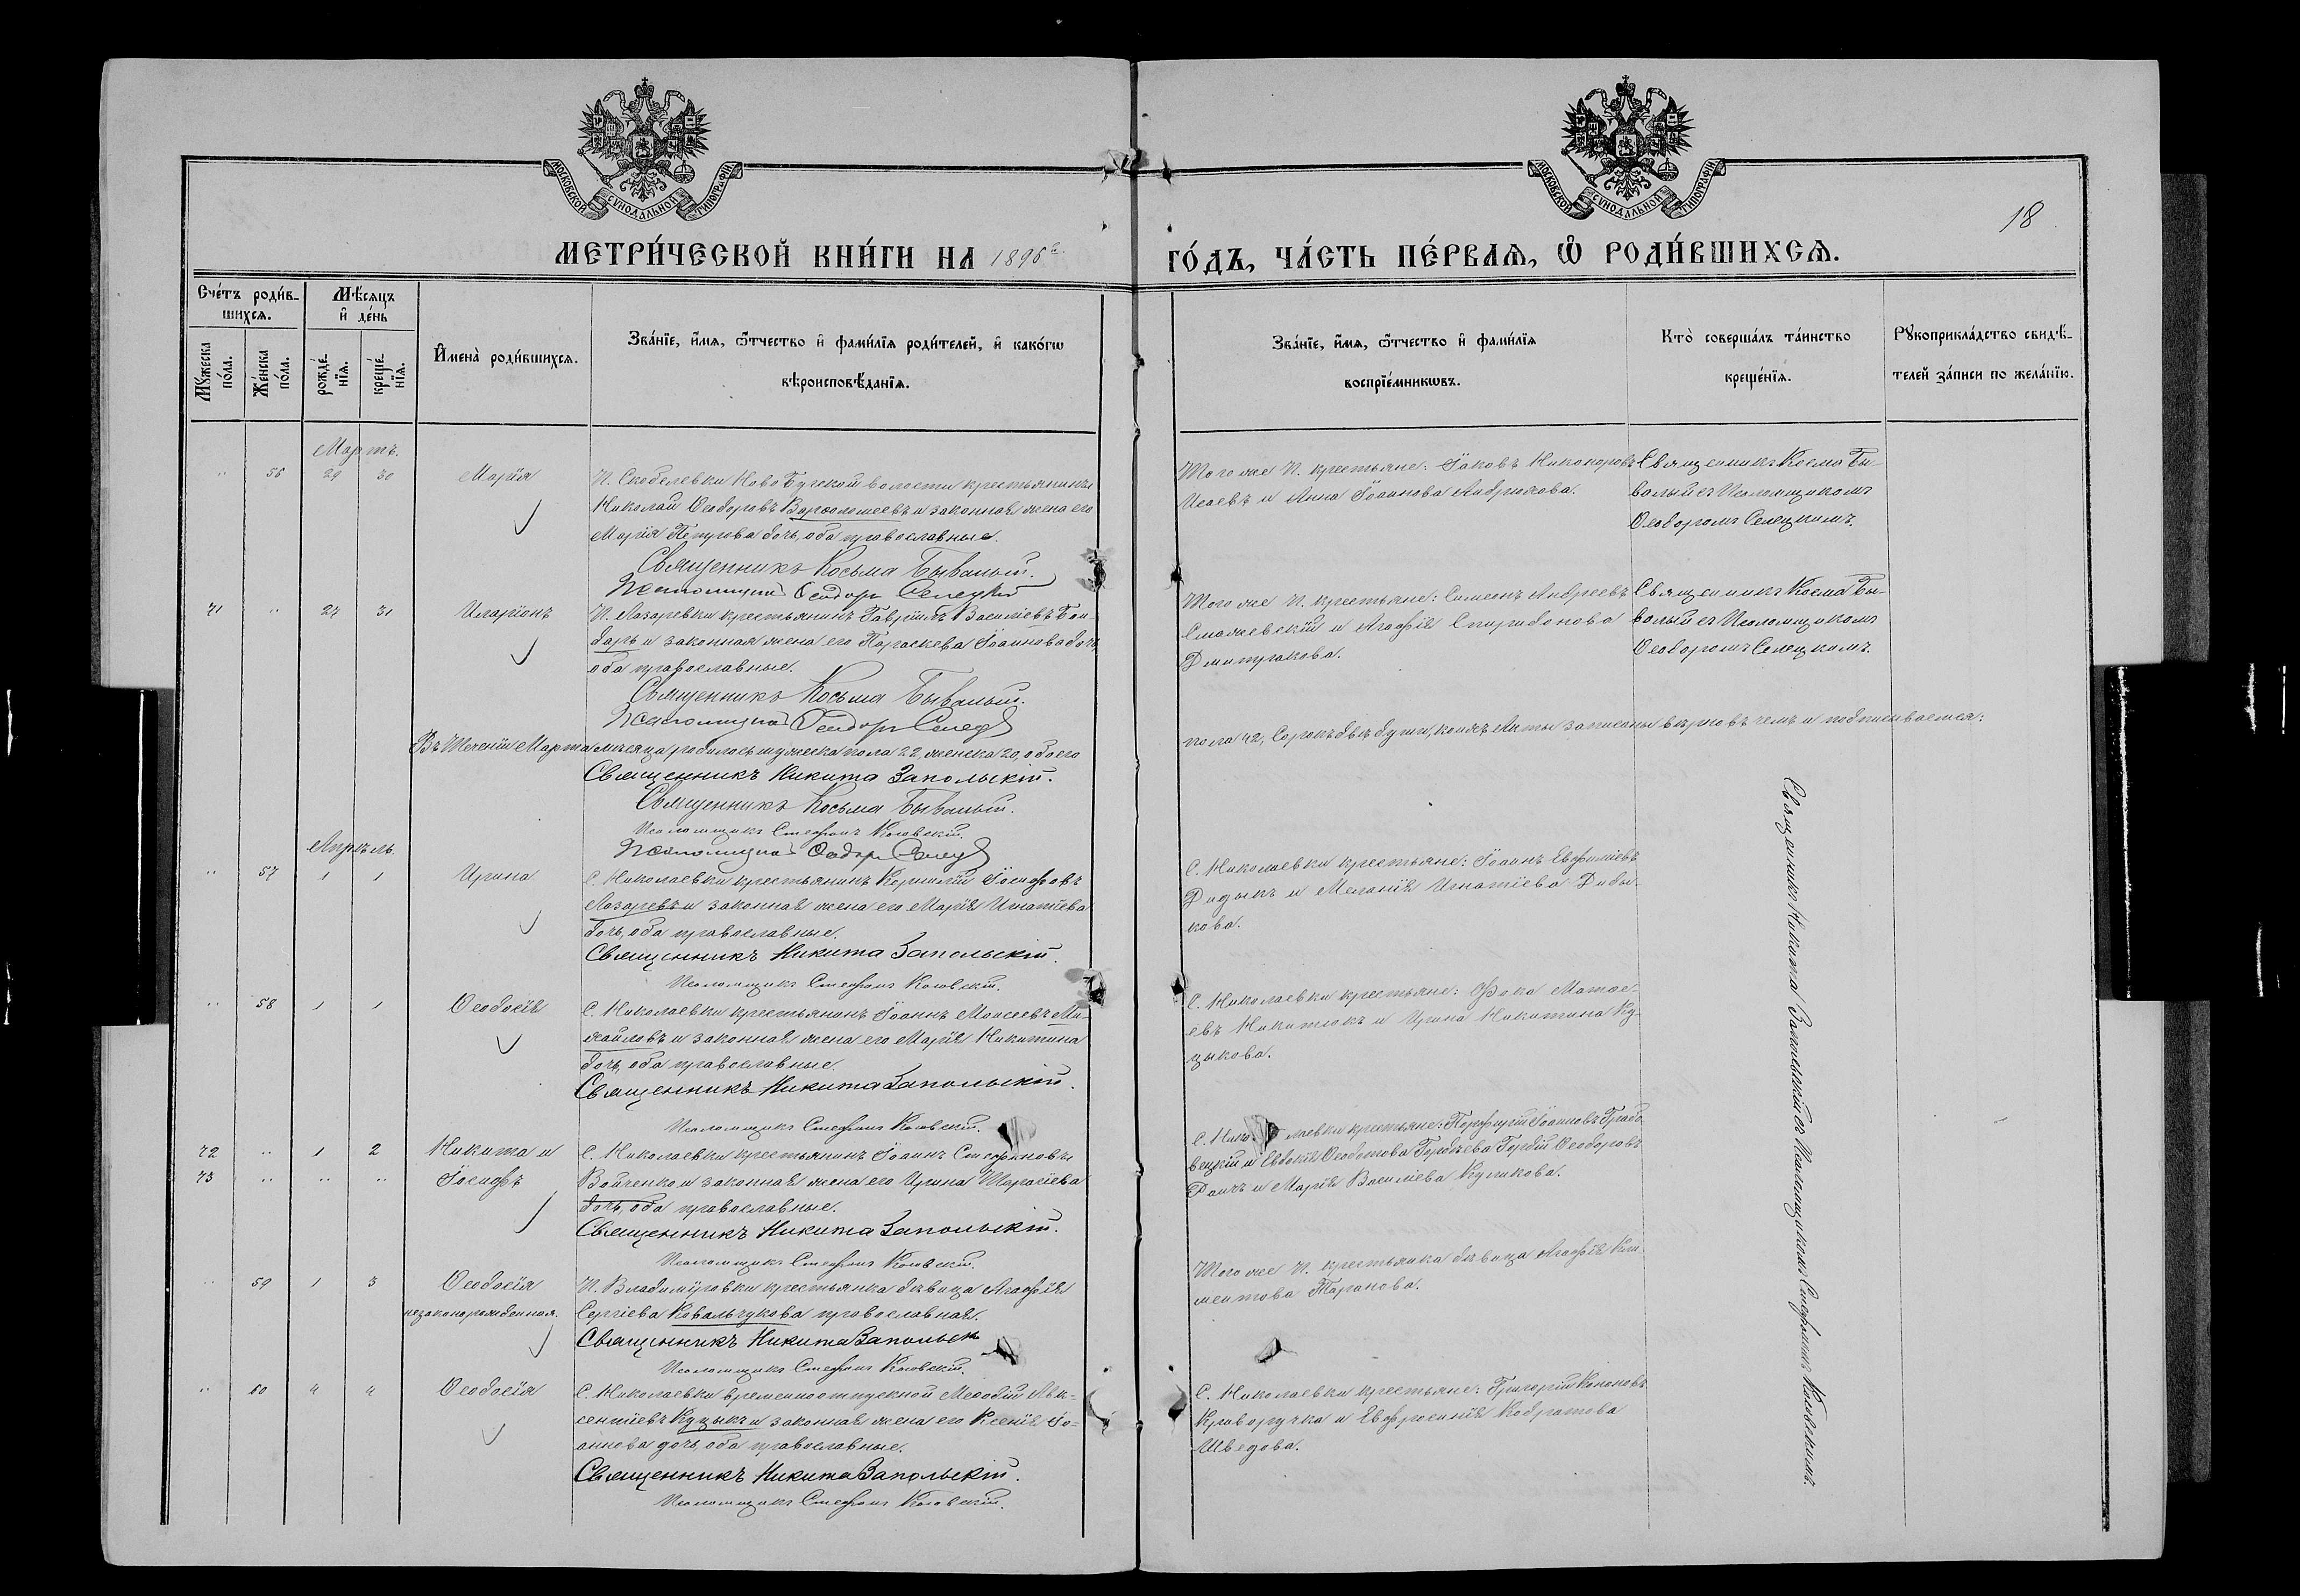 МОСКОВСКОЙ СѴНОДАЛЬНОЙ ТИПОГРАФІИ
МОСКОВСКОЙ СѴНОДАЛЬНОЙ ТИПОГРАФІИ
18
МЕТРИ́ЧЕСКОЙ КНИ́ГИ НА 1896 г.
ГО́ДЪ, ЧА́СТЬ ПЕ́РВАѦ, Ѡ РОДИ́ВШИХСѦ.
Сче́тъ роди́в-
шихсѧ.
Мꙋ́жеска по́ла.
Же́нска по́ла.
Мѣ́сѧцъ
и҆ де́нь
рожде́нїѧ.
креще́нїѧ.
И҆мена̀ роди́вшихсѧ.
Зва́нїе, и҆́мѧ, ѻ҆́тчество и҆ фами́лїѧ роди́телей, и҆ како́гѡ
вѣроисповѣ́данїѧ.
Зва́нїе, и҆́мѧ, ѻ҆́тчество и҆ фами́лїѧ
воспрїе́мникѡвъ.
Кто̀ соверша́лъ та́инство
креще́нїѧ.
Рꙋкоприкла́дство свидѣ́-
телей за́писи по жела́нїю.
Мартъ.
" 56 29 30 Марія
П. Скобелевки Ново Бугской волости крестьянинъ
Николай Ѳеодоровъ Варѳоломеевъ и законная жена его
Марія Петрова дочь, оба православные.
Священникъ Косьма Бывалый.
Псаломщикъ Ѳеодоръ Селецкій
Того же П. крестьяне: Іаковъ Никоноровъ
Исаевъ и Анна Іоаннова Андрюкова.
Священникъ Косма Бы-
валый съ Псаломщикомъ
Ѳеодоромъ Селецкимъ.
71 " 27 31 Иларіонъ
П. Лазаревки крестьянинъ Гавріилъ Василіевъ Бон-
дарь и законная жена его Параскева Іоаннова дочь,
оба православные.
Священникъ Косьма Бывалый.
Псаломщикъ Ѳеодоръ Селец
Того же П. крестьяне: Симеонъ Андреевъ
Смажевскій и Агафія Спиридонова
Дмитракова.
Священникъ Косма Бы-
валый съ Псаломщикомъ
Ѳеодоромъ Селецкимъ.
Въ теченіи Марта мѣсяца родилось мужеска пола 22, женска 20, обоего
пола 42, Сорокъ двѣ души, коихъ Акты записаны вѣрно въ чемъ и подписываемся:
Священникъ Никита Запольскій.
Священникъ Косьма Бывалый.
Псаломщикъ Стефанъ Киовскій.
Псаломщикъ Ѳеодоръ Селец
Апрѣль.
" 57 1 1 Ирина
С. Николаевки крестьянинъ Корнилій Іосифовъ
Лазаревъ и законная жена его Марія Игнатіева
дочь, оба православные.
Священникъ Никита Запольскій.
Псаломщикъ Стефанъ Киовскій.
С. Николаевки крестьяне: Іоаннъ Евфиміевъ
Дидыкъ и Меланія Игнатіева Диды-
кова.
" 58 1 1 Ѳеодосія
С. Николаевки крестьянинъ Іоаннъ Моисеевъ Ми-
хайловъ и законная жена его Марія Никитина
дочь, оба православные.
Священникъ Никита Запольскій.
Псаломщикъ Стефанъ Киовскій.
С. Николаевки крестьяне: Фока Матѳе-
евъ Никитюкъ и Ирина Никитина Ку-
цыкова.
72 " 1 2 Никита и
73 " " " Іосифъ
С. Николаевки крестьянинъ Іоаннъ Стефановъ
Войченко и законная жена его Ирина Тарасіева
дочь, оба православные.
Священникъ Никита Запольскій.
Псаломщикъ Стефанъ Киовскій.
С. Нико лаевки крестьяне: Порфирій Іоанновъ Грабо-
вецкій и Евдокія Ѳеодотова Гордѣева Гордій Ѳеодоровъ
и Марія Василіева Куликова.
" 59 1 3 Ѳеодосія
незаконорожденная.
П. Владиміровки крестьянка дѣвица Агафія
Сергіева Ковальчукова православная.
Священникъ Никита Запольск
Псаломщикъ Стефанъ Киовскій.
Того же П. крестьянка дѣвица Агафія Кли-
ментова Таранова.
" 60 4 4 Ѳеодосія
С. Николаевки временноотпускной Меѳодій Авк-
сентіевъ Куцыкъ и законная жена его Ксенія Іо-
аннова дочь, оба православные.
Священникъ Никита Запольскій.
Псаломщикъ Стефанъ Киовскій.
С. Николаевки крестьяне: Григорій Кононовъ
Криворучка и Евфросинія Кодратова
Шведова.
Священникъ Никита Запольскій съ Псаломщикомъ Стефаномъ Киовскимъ.